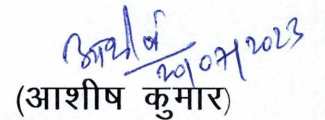 20/07/2023
(आशीष कुमार)